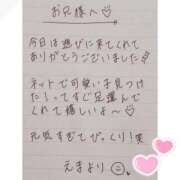 お兄様へ♡
今日は遊びに来てくれて
ありがとうございました
ネットで可愛い子見つけ
た!ってすぐ足運んで
くれて嬉しいよ〜
元気すぎてびっくり!笑
えまより